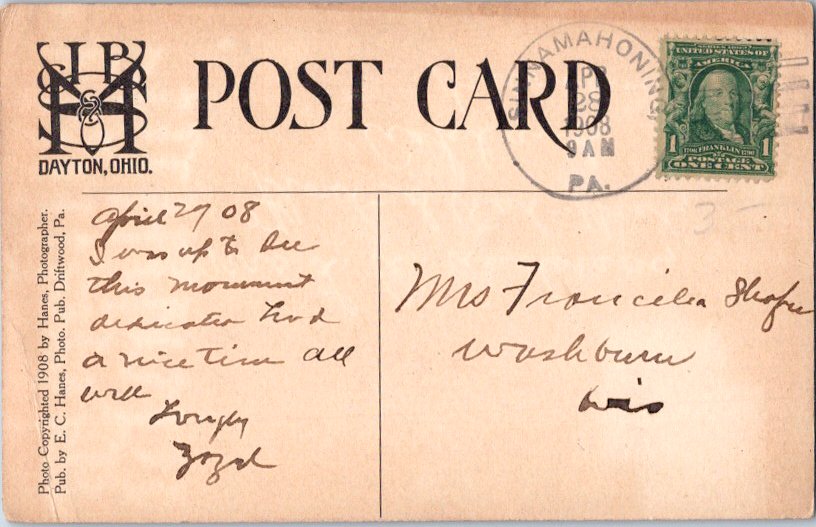 POST CARD
DAYTON, OHIO.
SINNAMAHONING
APR
28
1908
9 AM
PA.
SERIES 1902
UNITED STATES OF
AMERICA
1 1
1706 FRANKLIN 1790
POSTAGE
ONE CENT
3 -
Photo Copyrighted 1908 by Hanes, Photographer.
Pub. by E. C. Hanes, Photo. Pub. Driftwood, Pa.
April 27 08
I was up to see
this monument
dedicated had
a nice time all
well
Mrs Francilea
Washburn
Wis